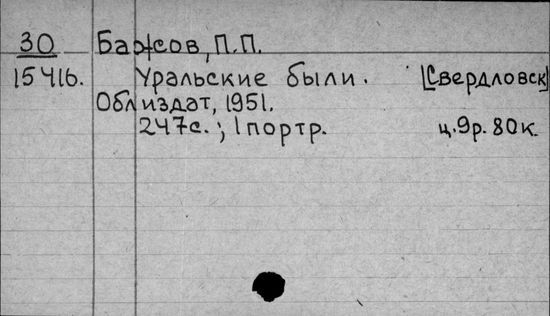 30 Бажов, П.П.
15416. Уральские были. [Свердловск]
Облиздат, 1951.
247с.; 1портр. ц.9р.80к.